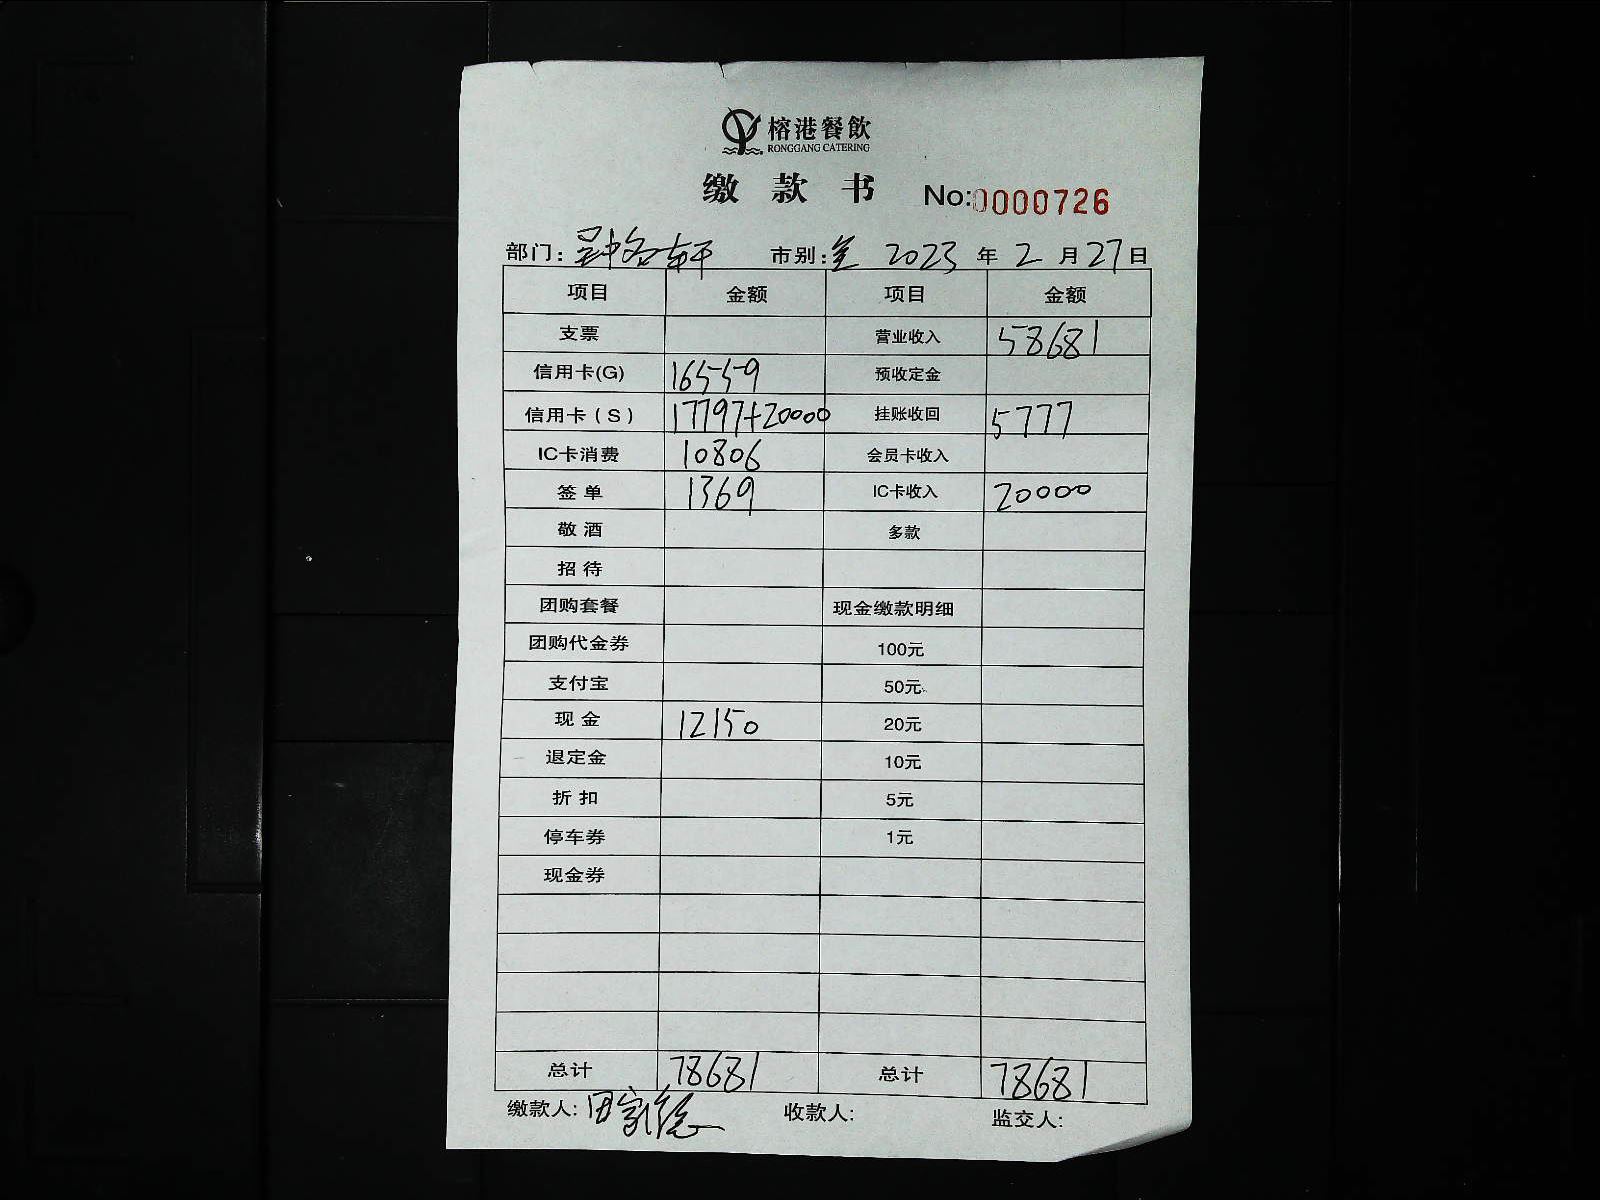 榕港餐飲
RONGGANG CATERING
缴款书 No:0000726
部门: 市别: 2023年2月27日
项目 金额 项目 金额
支票 营业收入 58681
信用卡(G) 16559 预收定金
信用卡(S) 17797+20000 挂账收回 5777
IC卡消费 10806 会员卡收入
签单 1369 IC卡收入 20000
敬酒 多款
招待
团购套餐 现金缴款明细
团购代金券 100元
支付宝 50元
现金 12150 20元
退定金 10元
折扣 5元
停车券 1元
现金券
总计 78681 总计 78681
缴款人: 收款人: 监交人: